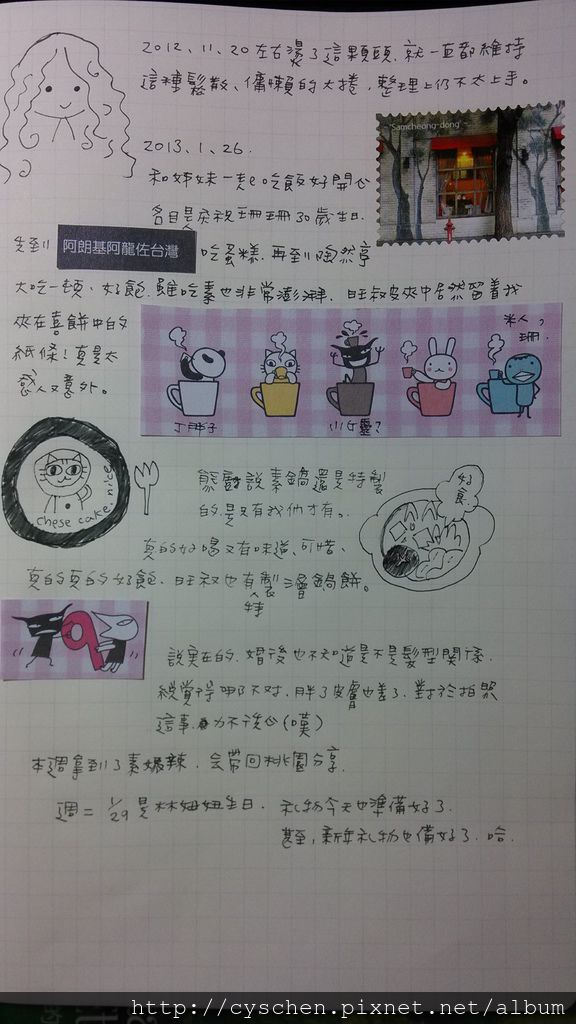 2012.11.20左右燙了這顆頭、就一直都維持
這種鬆散、慵懶的大捲，整理上仍不太上手。
Samcheong-dong
2013.1.26.
和姊妹一吃飯好開心
名目是慶祝珊珊30歲生日
先到 阿朗基阿龍佐台灣 吃蛋糕.再到陶然亭
大吃一頓、好飽.雖吃素也非常澎湃.旺叔皮夾中居然留著我
夾在喜餅中的
紙條！真是太
感人又意外。
米人？
珊.
丁胖子
小女靈？
chese cake. nice
熊說素鍋還是特製
的.是只有我們才有。
好食
真的好喝又有味道、可惜、
真的真的好飽.旺叔也有特製鍋餅。
說實在的.婚後也不知道是不是髮型關係.
總覺得哪不對.胖了皮膚也差了.對於拍照
這事力不從心(嘆)
本週拿到了素爆辣.会帶回桃園分享.
週二 1/29是林妞妞生日. 礼物今天也準備好了.
甚至,新年礼物也備好了.哈.
http://cyschen.pixnet.net/album